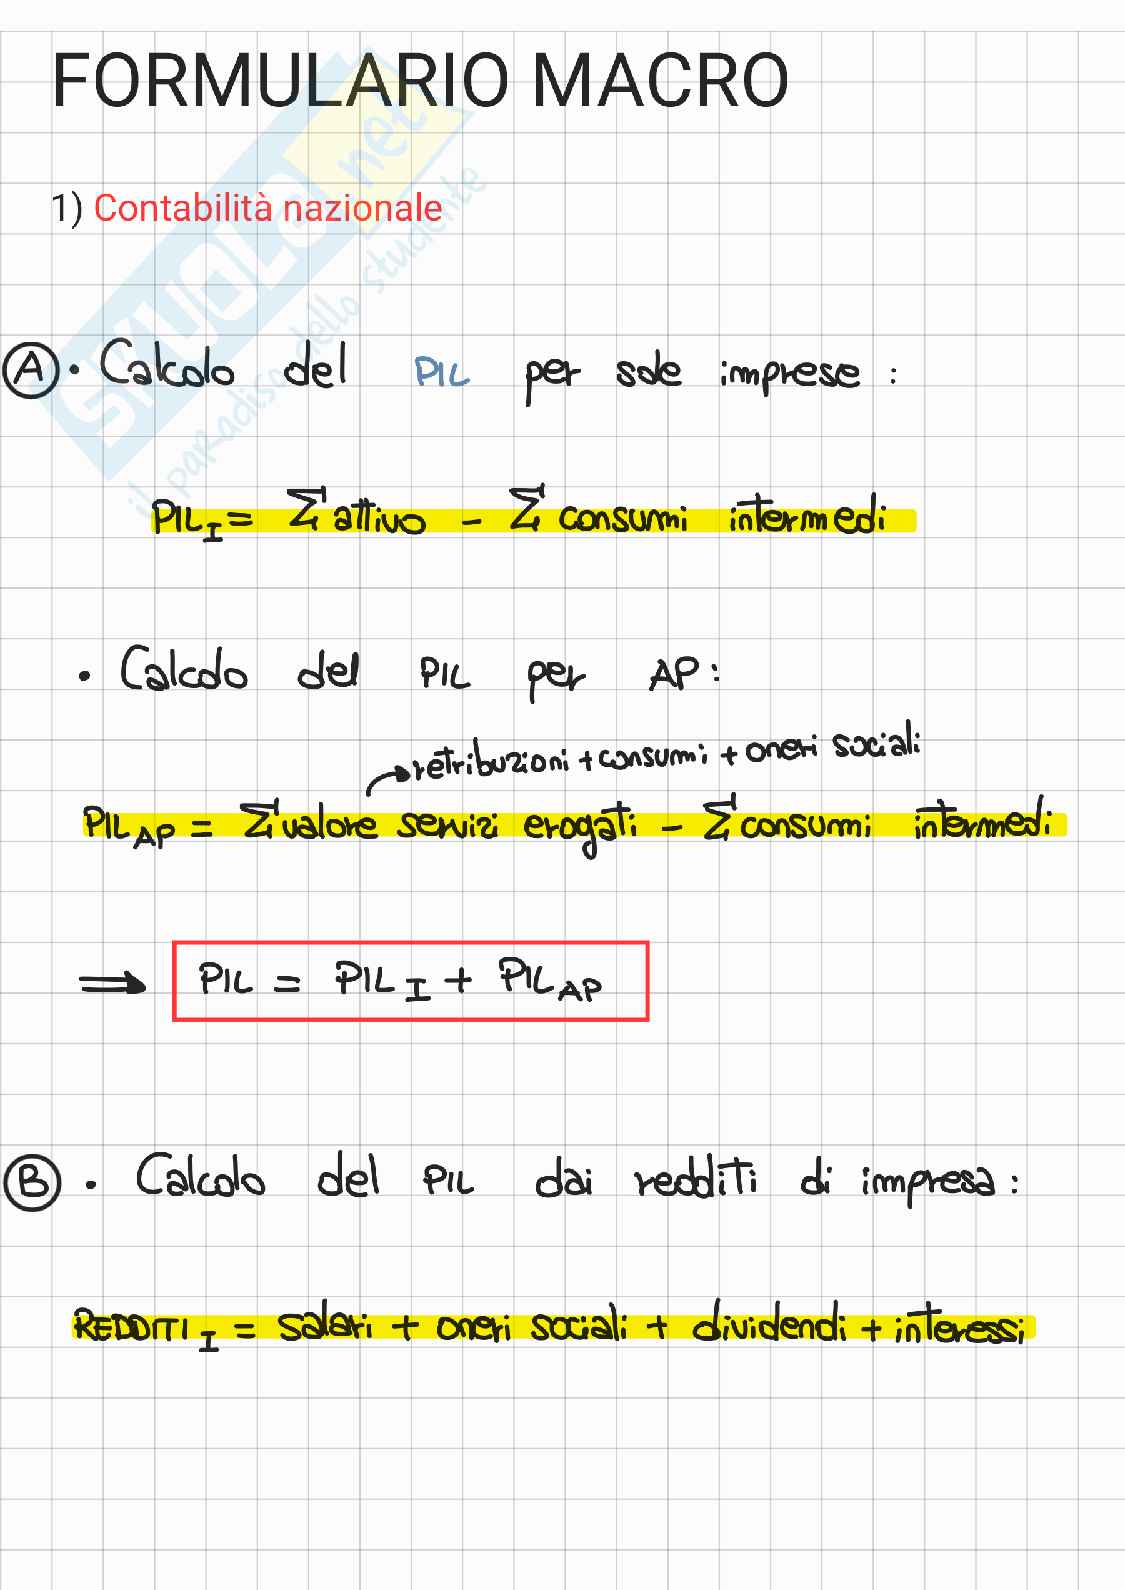 FORMULARIO MACRO
1) Contabilità nazionale
SKUOLA.net
il paradiso dello studente
A • Calcolo del PIL per sole imprese:
PIL_I = Σ attivo - Σ consumi intermedi
• Calcolo del PIL per AP:
retribuzioni + consumi + oneri sociali
PIL_AP = Σ valore servizi erogati - Σ consumi intermedi
⇒ PIL = PIL_I + PIL_AP
B • Calcolo del PIL dai redditi di impresa:
REDDITI_I = salari + oneri sociali + dividendi + interessi